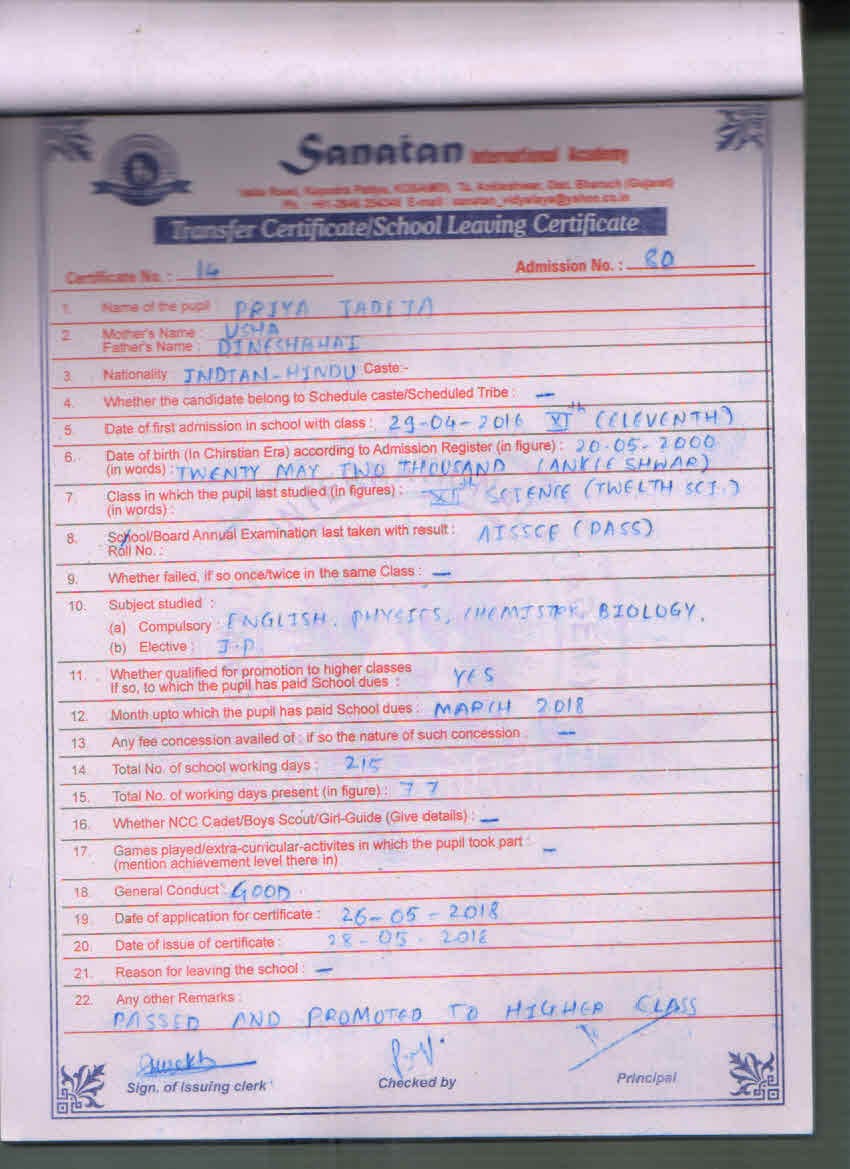 Sanatan International Academy
Valia Road, Kapodra Patiya, KOSAMDI, Ta. Ankleshwar, Dist. Bharuch (Gujarat)
Ph. : E-mail : sanatan_vidyalaya@yahoo.co.in
Transfer Certificate/School Leaving Certificate
Certificate No. : 14 Admission No. : 80
1. Name of the pupil : PRIYA JADEJA
2. Mother's Name : USHA
Father's Name : DINESHBHAI
3. Nationality INDIAN-HINDU Caste:-
4. Whether the candidate belong to Schedule caste/Scheduled Tribe : —
5. Date of first admission in school with class : 29-04-2016 XIth (ELEVENTH)
6. Date of birth (In Chirstian Era) according to Admission Register (in figure) : 20-05-2000
(in words) : TWENTY MAY TWO THOUSAND (ANKLESHWAR)
7. Class in which the pupil last studied (in figures) : XIIth SCIENCE (TWELTH SCI.)
(in words) :
8. School/Board Annual Examination last taken with result : AISSCE (PASS)
Roll No. :
9. Whether failed, if so once/twice in the same Class : —
10. Subject studied :
(a) Compulsory : ENGLISH, PHYSICS, CHEMISTRY, BIOLOGY.
(b) Elective :
11. Whether qualified for promotion to higher classes YES
If so, to which the pupil has paid School dues :
12. Month upto which the pupil has paid School dues : MARCH 2018
13. Any fee concession availed of : if so the nature of such concession : —
14. Total No. of school working days : 215
15. Total No. of working days present (in figure) : 77
16. Whether NCC Cadet/Boys Scout/Girl-Guide (Give details) : —
17. Games played/extra-curricular-activites in which the pupil took part : —
(mention achievement level there in)
18. General Conduct : GOOD
19. Date of application for certificate : 26-05-2018
20. Date of issue of certificate : 28-05-2018
21. Reason for leaving the school : —
22. Any other Remarks :
PASSED AND PROMOTED TO HIGHER CLASS
Sign. of Issuing clerk Checked by Principal